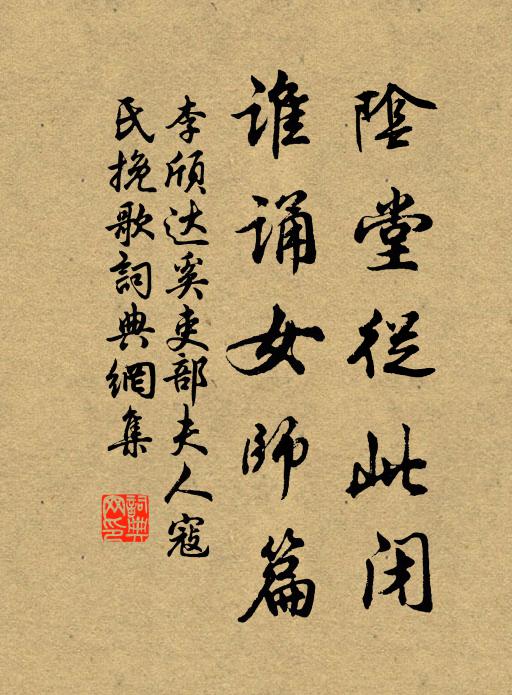 陰堂從此閉
谁诵女师篇
李頎达奚吏部夫人寇
氏挽歌詞典網集
詞典网印